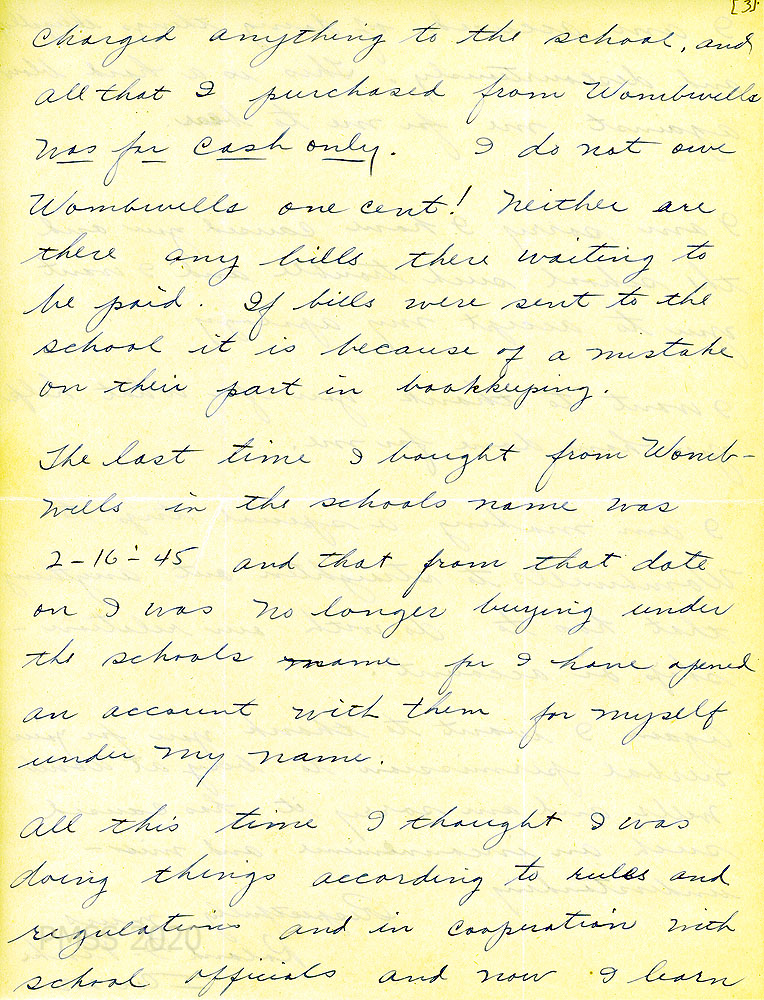 [3]
charged anything to the school, and
all that I purchased from Wombwells
was for cash only. I do not owe
Wombwells one cent! Neither are
there any bills there waiting to
be paid. If bills were sent to the
school it is because of a mistake
on their part in bookkeeping.
The last time I bought from Womb-
wells in the schools name was
2-16-45 and that from that date
on I was no longer buying under
the schools name for I have opened
an account with them for myself
under my name.
All this time I thought I was
doing things according to rules and
regulations and in cooperation with
PMSS 2020
school officials and now I learn